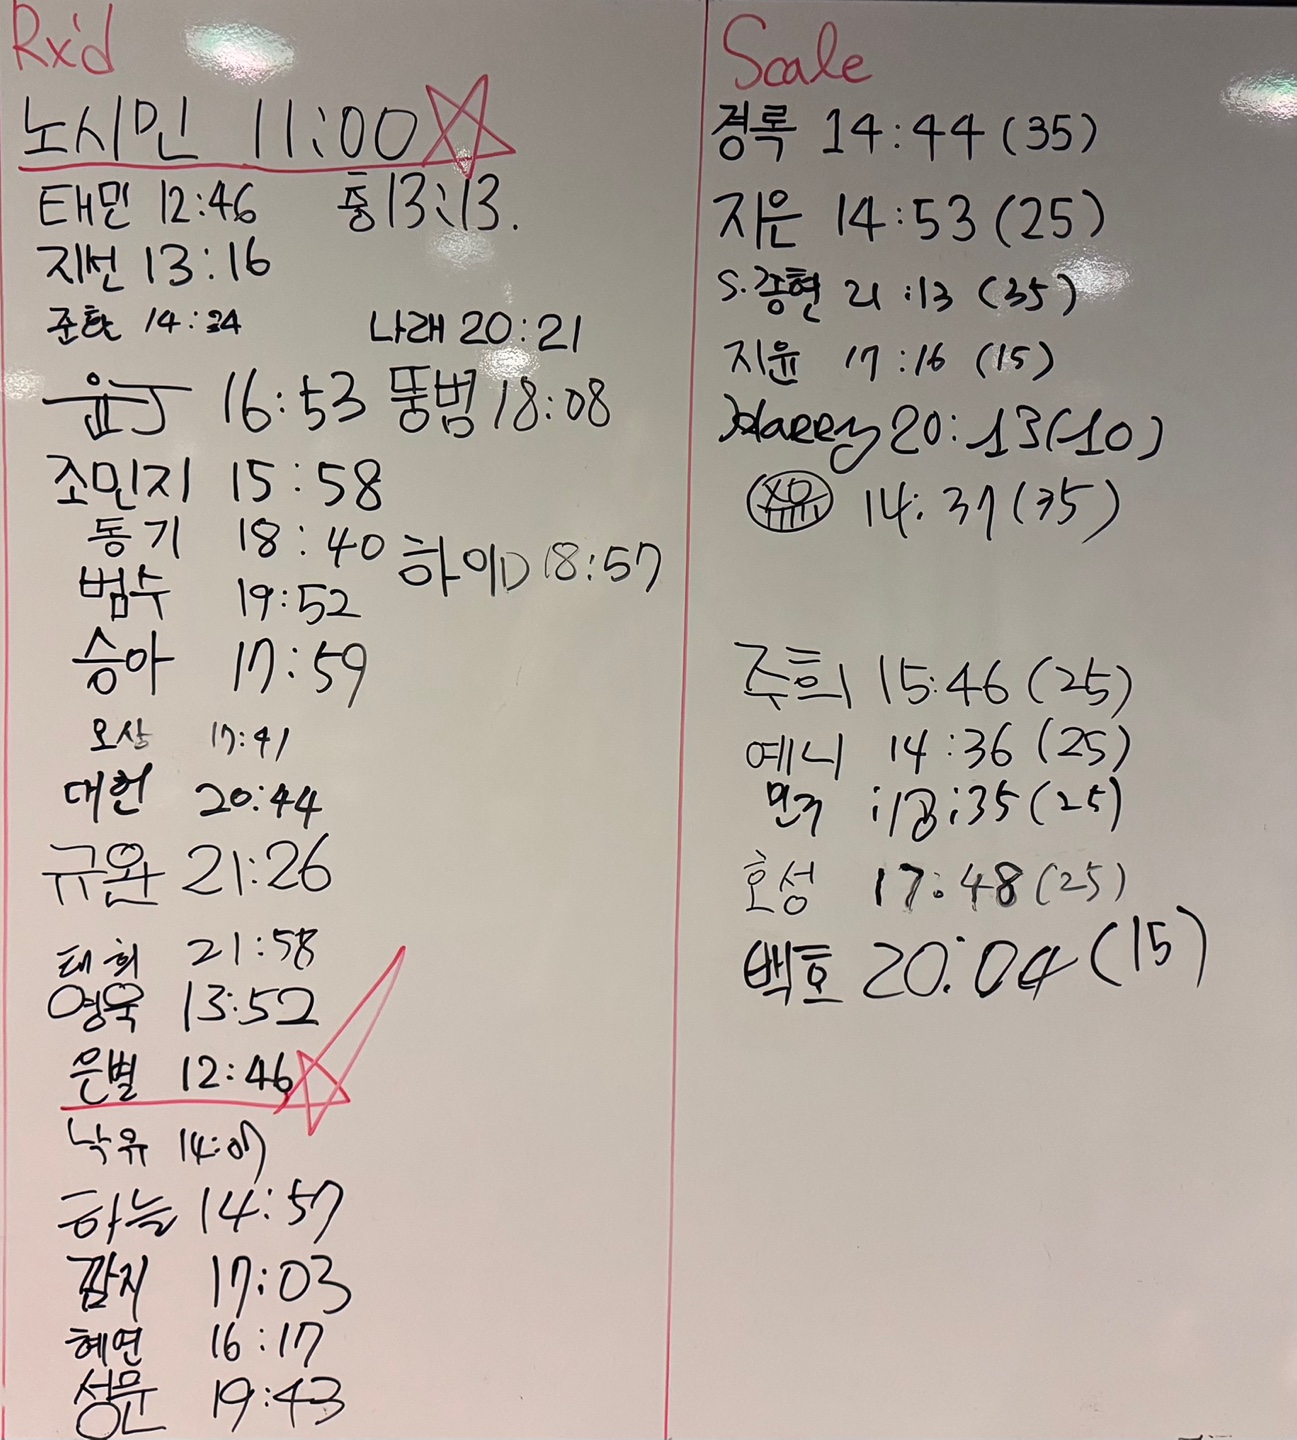 Rx'd
노시민 11:00
태민 12:46 홍 13:13.
지선 13:16
준환 14:34 나래 20:21
윤J 16:53 뚱범 18:08
조민지 15:58
동기 18:40 하이D 18:57
범수 19:52
승아 17:59
오상 17:41
대헌 20:44
규완 21:26
태희 21:58
영욱 13:52
은별 12:46
낙유 14:07
하늘 14:57
깜지 17:03
혜연 16:17
성문 19:43
Scale
경록 14:44 (35)
지은 14:53 (25)
S.종현 21:13 (35)
지윤 17:16 (15)
Harry 20:13 (10)
14:37 (35)
주희 15:46 (25)
예니 14:36 (25)
민주 :35 (25)
호성 17:48 (25)
백호 20:04 (15)